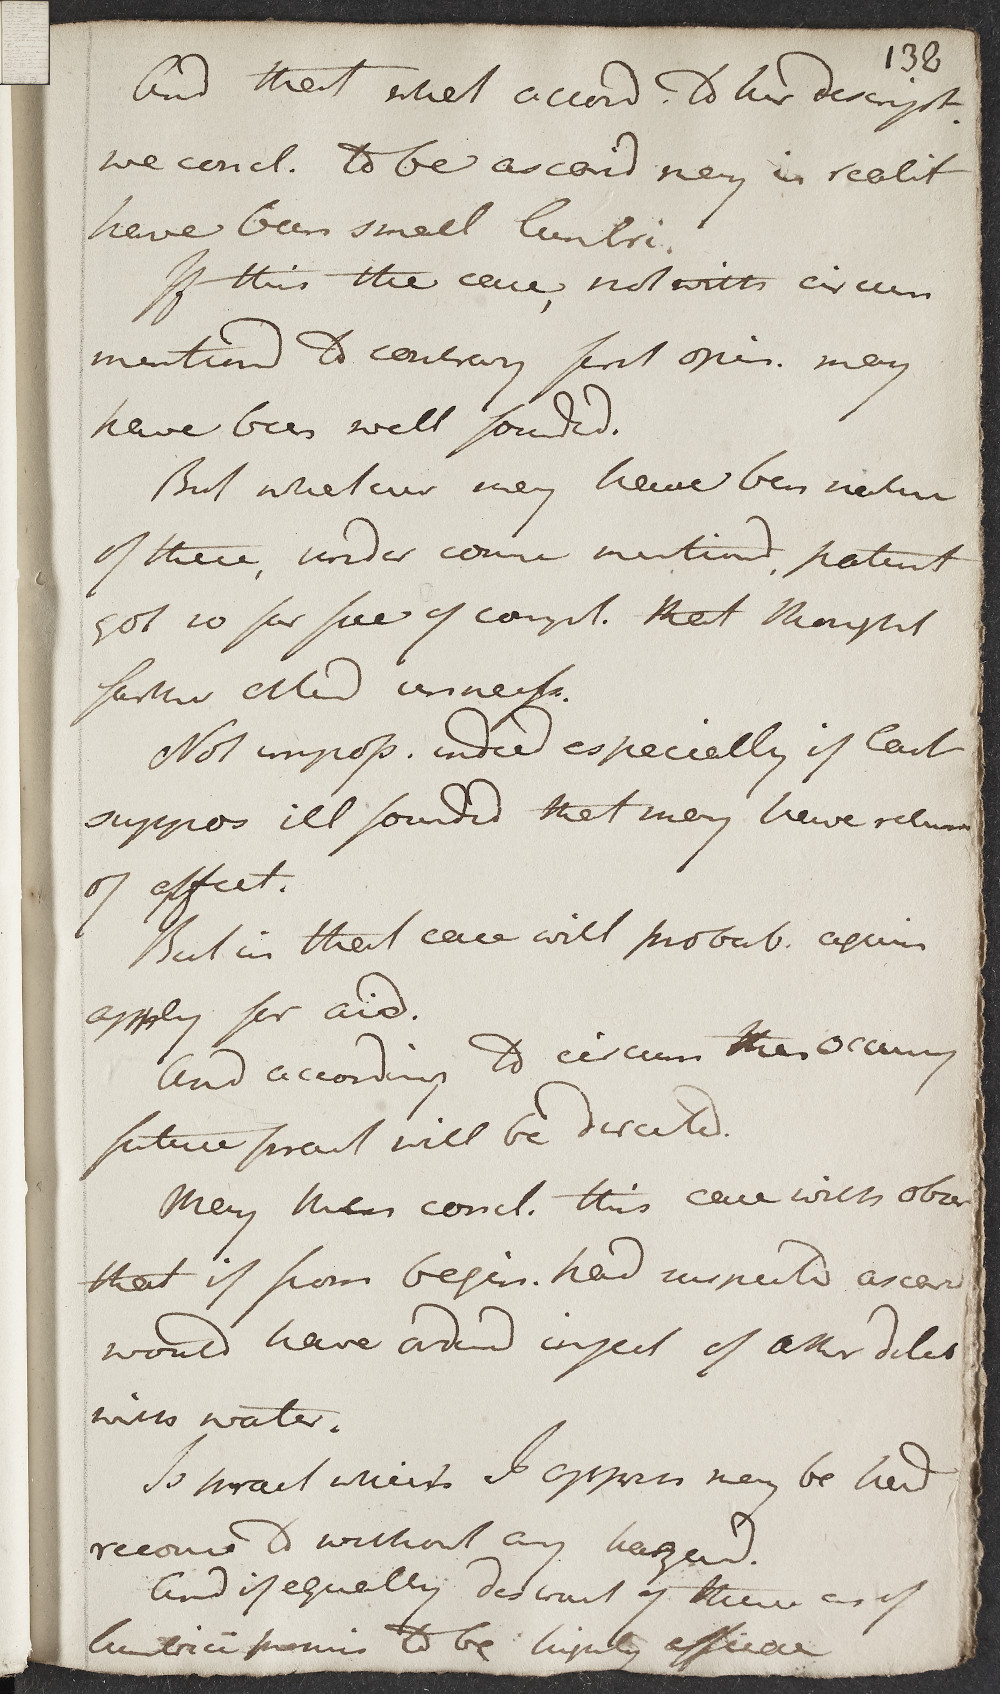 138
And that what accord. to her descript.
we concl. to be ascarid may in realit
have been small lumbri.
If this the case, not with circum
mentiond to contrary first opin. may
have been well founded.
But whatever may have been nature
of these, under course mentiond, patient
got so far free of compl. that thought
farther attend unnecess.
Not imposs. indeed especially if last
suppos ill founded that may have return
of affect.
But in that case will probab. again
apply for aid.
And according to circum then occurring
future pract will be directed.
May then concl. this case with obser
that if from begin. had suspected ascarid
would have ordered inject of æther dilut
with water.
Is pract which I apprehen may be had
recourse to without any hazard.
And if equally destruct of these as of
lumbrici promis to be highly efficac